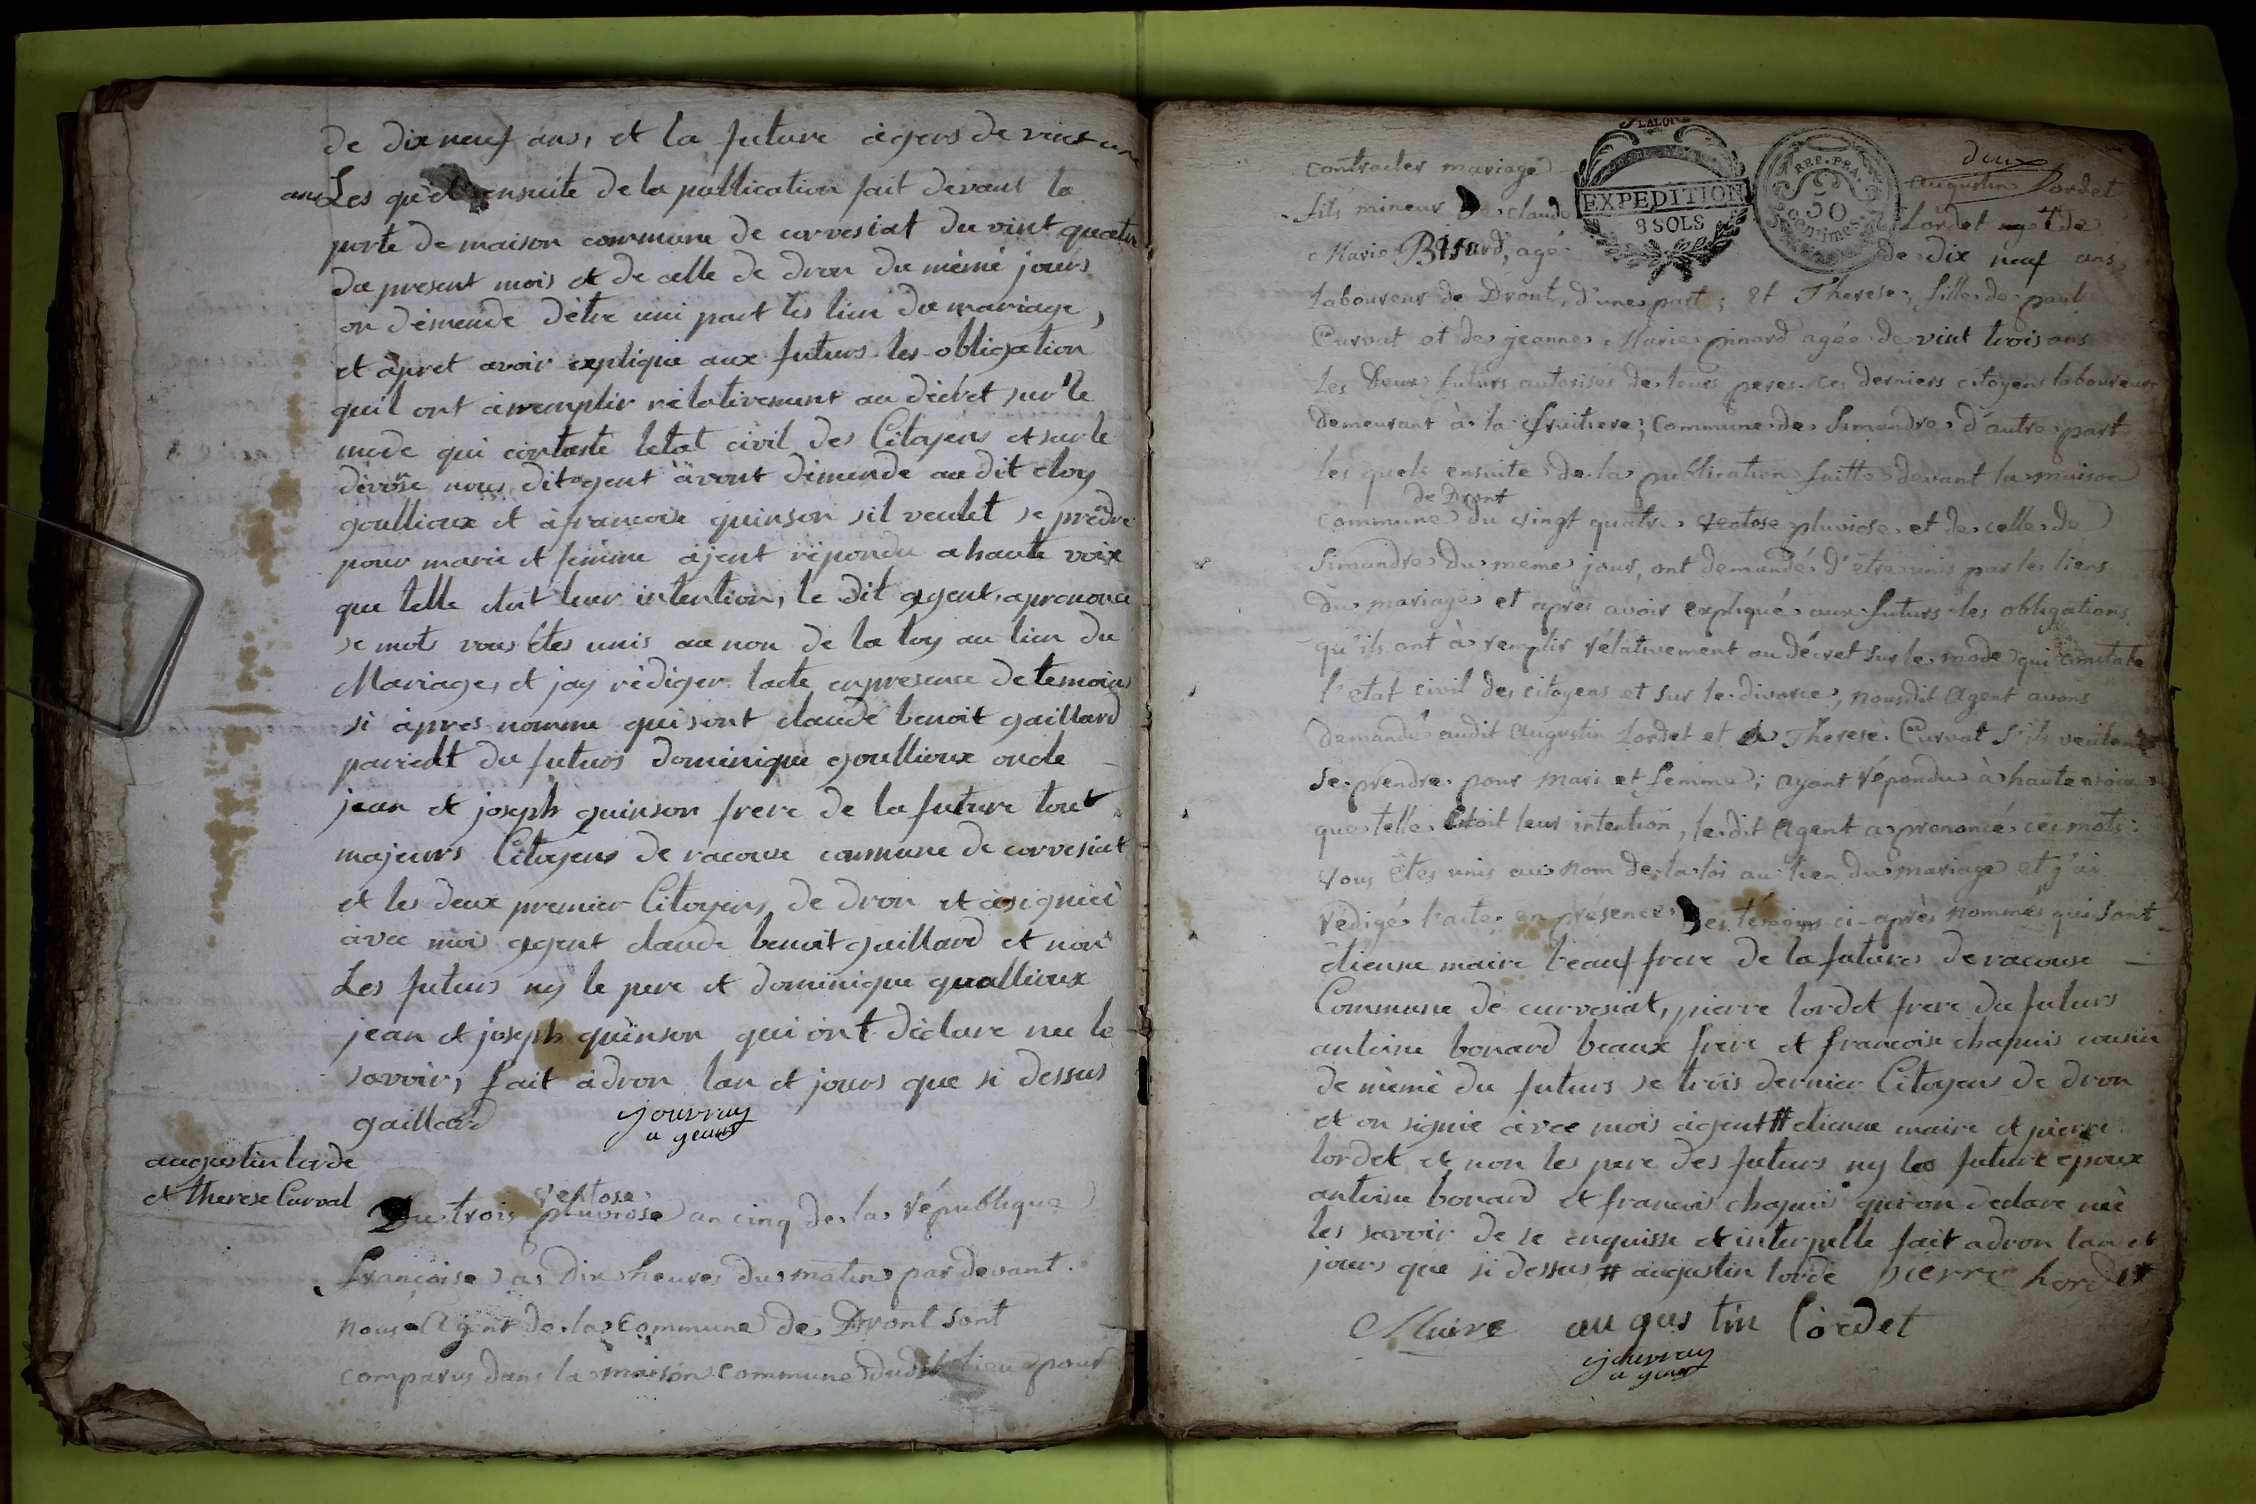 de dix neuf ans, et la future àgers de vint une
ans Les quel ensuite de la publication fait devant la
porte de maison commune de corvesiat du vint quatre
du present mois et de celle de dron du mémé jours
on démende détre uni part les lien du mariage,
et àpret avoir expliquie aux futurs les obligation
quil ont àremplir rélativement au décret sur le
mode qui contaste letat civil des Citoyens et sur le
dévose nous dit agent àvont démende au dit cloy
goullioux et àfrancoise guinson sil veulet se prèdre
pour marie et femme àjent répondu a haute voix
que telle etoit leur intention, le dit agent, aprononce
se mots vous étes unis au non de la loy au lien du
Mariage, et jay rédiger lacte enpresence de temoins
si àpres nomme qui sont claude benoit gaillard
parient du futurs dominique goullioux oncle
jean et joseph guinson frere de la future tout
majeurs Citoyens de racouse commune de corvesiat
et les deux premier Citoyens de dron et àsigniéé
àvec mois agent claude benoit gaillard et non
Les futurs ny le pere et dominique guallioux
jean et joseph guinson qui ont déclare neu le
savoir, fait àdron lan et jours que si dessus
gaillard jouvray
agent
augustin lorde
et therese Curval
ventose
Du trois pluviose an cinq de la république
française à dix heures du matin par devant
nous Agent de la commune de Dront sont
comparus dans la maison commune dudit lieu pour
LALOI
EXPEDITION
8 SOLS
REP. FRA.
50
centimes
deux
contracter mariage augustin Lordet
fils mineur de claude Lordet et de
Marie Bisard, agé de dix neuf ans
laboureur de Dront, d'une part; et Therese, fille de paul
Curvat et de jeanne Marie pinard agée de vint trois ans
les deux futurs autorisés de leurs peres. ces derniers citoyens laboureurs
demeurant à la fruitiere, commune de Simandre d'autre part
les quels ensuite de la publication faitte devant la maison
de Dront
commune du vingt quatre ventose pluviose et de celle de
Simandre du meme jour, ont demandé d'etre unis par les liens
du mariage et après avoir expliqué aux futurs les obligations
qu'ils ont à remplir rélativement au décret sur le mode qui constate
l'etat civil des citoyens et sur le divorce, nous dit Agent avons
demandé audit Augustin Lordet et à Therese Curvat s'ils veulent
se prendre pour mari et femme; ayant répondu à haute voix
que telle étoit leur intention, le dit Agent a prononcé ces mots:
vous êtes unis au nom de la loi au lien du mariage et j'ai
rédigé l'acte en présence des témoins ci-après nommés qui sont
etienne maire beauf frere de la futures de racouse
Commune de curvesiat, pierre lordet frere du futurs
antoine bonard beaux frere et francoise chapuis cousin
de mémé du futurs se trois dernier Citoyens de dron
et on signie àvec mois agent # etienne maire et pierre
lordet et non les pere des futurs ny les future epoux
antoine bonard et francois chapuis qui on declare neè
les savoir de se enquisse et interpelle fait adron lan et
jours que si dessus # augustin lorde pierre lordet
Maire augustin lordet
jouvray
agent